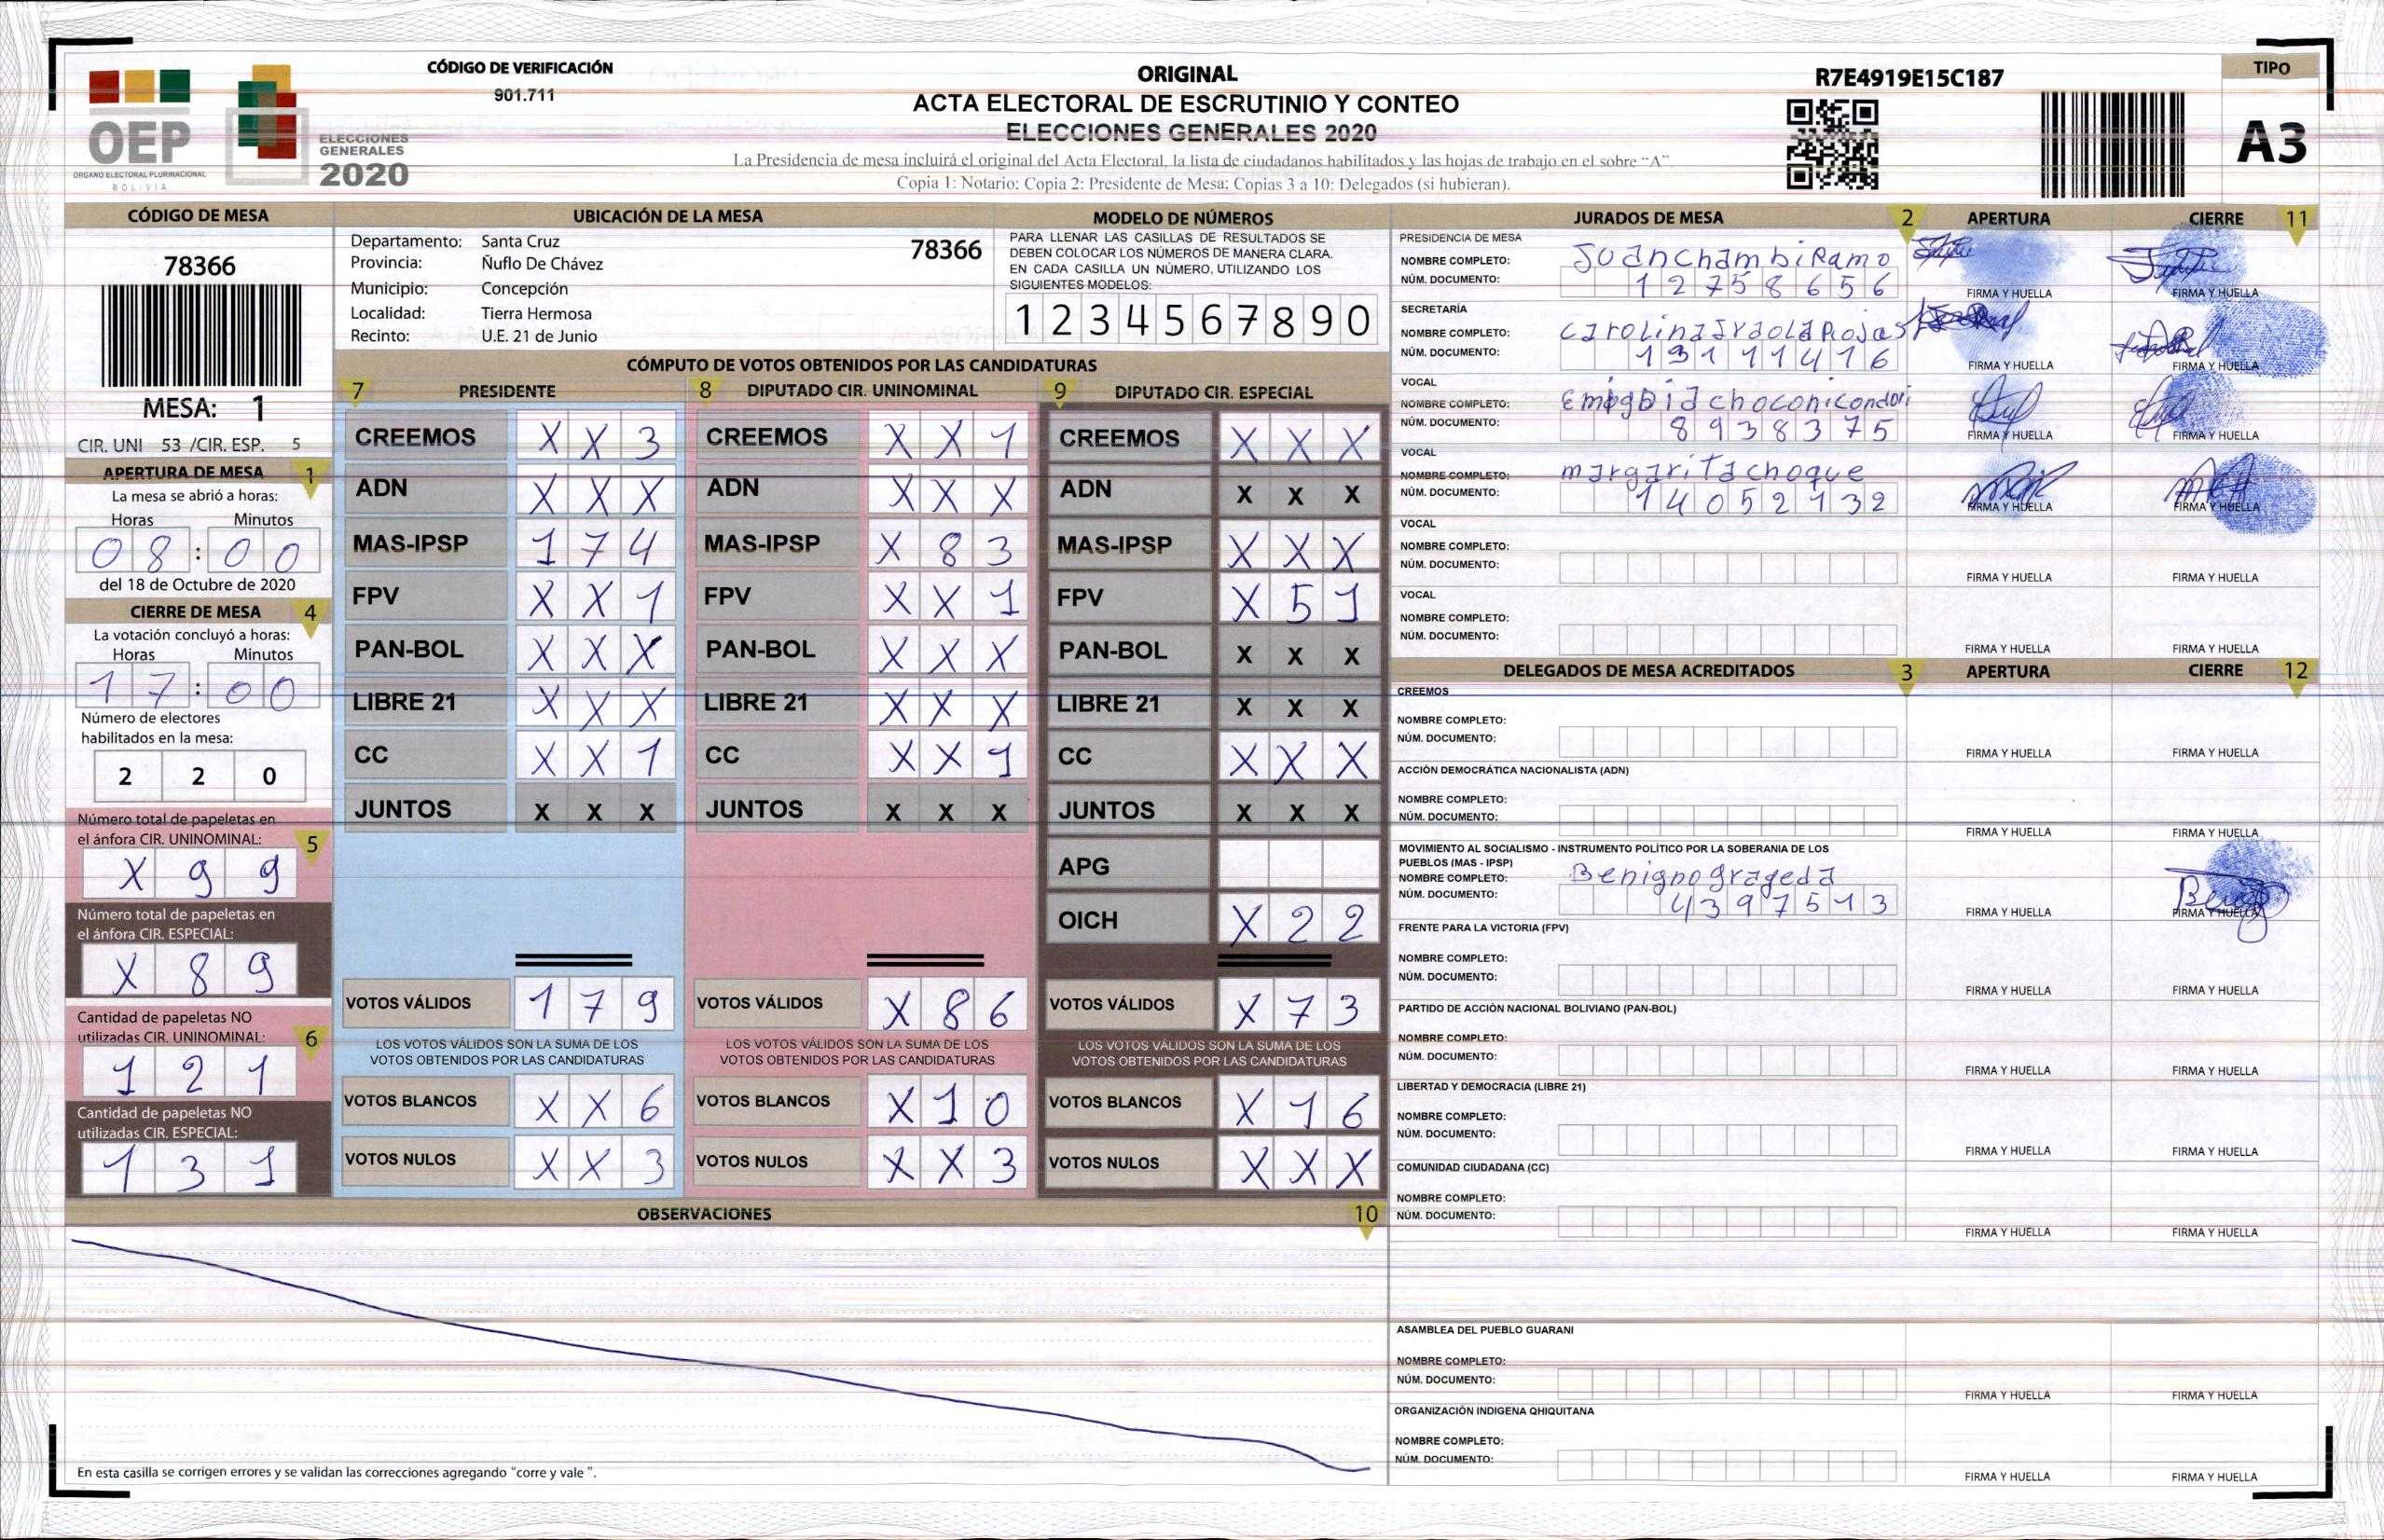 CÓDIGO DE VERIFICACIÓN
901.711
OEP
ORGANO ELECTORAL PLURINACIONAL
BOLIVIA
ELECCIONES
GENERALES
2020
ORIGINAL
ACTA ELECTORAL DE ESCRUTINIO Y CONTEO
ELECCIONES GENERALES 2020
La Presidencia de mesa incluirá el original del Acta Electoral, la lista de ciudadanos habilitados y las hojas de trabajo en el sobre “A”.
Copia 1: Notario; Copia 2: Presidente de Mesa; Copias 3 a 10: Delegados (si hubieran).
R7E4919E15C187
TIPO
A3
CÓDIGO DE MESA
78366
MESA: 1
CIR. UNI 53 /CIR. ESP. 5
APERTURA DE MESA 1
La mesa se abrió a horas:
Horas Minutos
08:00
del 18 de Octubre de 2020
CIERRE DE MESA 4
La votación concluyó a horas:
Horas Minutos
17:00
Número de electores
habilitados en la mesa:
2 2 0
Número total de papeletas en
el ánfora CIR. UNINOMINAL: 5
X 9 9
Número total de papeletas en
el ánfora CIR. ESPECIAL:
X 8 9
Cantidad de papeletas NO
utilizadas CIR. UNINOMINAL: 6
1 2 1
Cantidad de papeletas NO
utilizadas CIR. ESPECIAL:
1 3 1
UBICACIÓN DE LA MESA
Departamento: Santa Cruz 78366
Provincia: Ñuflo De Chávez
Municipio: Concepción
Localidad: Tierra Hermosa
Recinto: U.E. 21 de Junio
MODELO DE NÚMEROS
PARA LLENAR LAS CASILLAS DE RESULTADOS SE
DEBEN COLOCAR LOS NÚMEROS DE MANERA CLARA.
EN CADA CASILLA UN NÚMERO, UTILIZANDO LOS
SIGUIENTES MODELOS:
1 2 3 4 5 6 7 8 9 0
CÓMPUTO DE VOTOS OBTENIDOS POR LAS CANDIDATURAS
7 PRESIDENTE
CREEMOS X X 3
ADN X X X
MAS-IPSP 1 7 4
FPV X X 1
PAN-BOL X X X
LIBRE 21 X X X
CC X X 1
JUNTOS X X X
VOTOS VÁLIDOS 1 7 9
LOS VOTOS VÁLIDOS SON LA SUMA DE LOS
VOTOS OBTENIDOS POR LAS CANDIDATURAS
VOTOS BLANCOS X X 6
VOTOS NULOS X X 3
8 DIPUTADO CIR. UNINOMINAL
CREEMOS X X 1
ADN X X X
MAS-IPSP X 8 3
FPV X X 1
PAN-BOL X X X
LIBRE 21 X X X
CC X X 1
JUNTOS X X X
VOTOS VÁLIDOS X 8 6
LOS VOTOS VÁLIDOS SON LA SUMA DE LOS
VOTOS OBTENIDOS POR LAS CANDIDATURAS
VOTOS BLANCOS X 1 0
VOTOS NULOS X X 3
9 DIPUTADO CIR. ESPECIAL
CREEMOS X X X
ADN X X X
MAS-IPSP X X X
FPV X 5 1
PAN-BOL X X X
LIBRE 21 X X X
CC X X X
JUNTOS X X X
APG
OICH X 2 2
VOTOS VÁLIDOS X 7 3
LOS VOTOS VÁLIDOS SON LA SUMA DE LOS
VOTOS OBTENIDOS POR LAS CANDIDATURAS
VOTOS BLANCOS X 1 6
VOTOS NULOS X X X
OBSERVACIONES 10
En esta casilla se corrigen errores y se validan las correcciones agregando “corre y vale ”.
JURADOS DE MESA 2 APERTURA CIERRE 11
PRESIDENCIA DE MESA
NOMBRE COMPLETO: Juan Chambi Ramo
NÚM. DOCUMENTO: 12758656
FIRMA Y HUELLA FIRMA Y HUELLA
SECRETARÍA
NOMBRE COMPLETO: Carolina Iraola Rojas
NÚM. DOCUMENTO: 13111416
FIRMA Y HUELLA FIRMA Y HUELLA
VOCAL
NOMBRE COMPLETO: choconicondori
NÚM. DOCUMENTO: 8938375
FIRMA Y HUELLA FIRMA Y HUELLA
VOCAL
NOMBRE COMPLETO: margarita choque
NÚM. DOCUMENTO: 14052132
FIRMA Y HUELLA FIRMA Y HUELLA
VOCAL
NOMBRE COMPLETO:
NÚM. DOCUMENTO:
FIRMA Y HUELLA FIRMA Y HUELLA
VOCAL
NOMBRE COMPLETO:
NÚM. DOCUMENTO:
FIRMA Y HUELLA FIRMA Y HUELLA
DELEGADOS DE MESA ACREDITADOS 3 APERTURA CIERRE 12
CREEMOS
NOMBRE COMPLETO:
NÚM. DOCUMENTO:
FIRMA Y HUELLA FIRMA Y HUELLA
ACCIÓN DEMOCRÁTICA NACIONALISTA (ADN)
NOMBRE COMPLETO:
NÚM. DOCUMENTO:
FIRMA Y HUELLA FIRMA Y HUELLA
MOVIMIENTO AL SOCIALISMO - INSTRUMENTO POLÍTICO POR LA SOBERANIA DE LOS
PUEBLOS (MAS - IPSP)
NOMBRE COMPLETO: Benigno grageda
NÚM. DOCUMENTO: 4397513
FIRMA Y HUELLA FIRMA Y HUELLA
FRENTE PARA LA VICTORIA (FPV)
NOMBRE COMPLETO:
NÚM. DOCUMENTO:
FIRMA Y HUELLA FIRMA Y HUELLA
PARTIDO DE ACCIÓN NACIONAL BOLIVIANO (PAN-BOL)
NOMBRE COMPLETO:
NÚM. DOCUMENTO:
FIRMA Y HUELLA FIRMA Y HUELLA
LIBERTAD Y DEMOCRACIA (LIBRE 21)
NOMBRE COMPLETO:
NÚM. DOCUMENTO:
FIRMA Y HUELLA FIRMA Y HUELLA
COMUNIDAD CIUDADANA (CC)
NOMBRE COMPLETO:
NÚM. DOCUMENTO:
FIRMA Y HUELLA FIRMA Y HUELLA
ASAMBLEA DEL PUEBLO GUARANI
NOMBRE COMPLETO:
NÚM. DOCUMENTO:
FIRMA Y HUELLA FIRMA Y HUELLA
ORGANIZACIÓN INDIGENA QHIQUITANA
NOMBRE COMPLETO:
NÚM. DOCUMENTO:
FIRMA Y HUELLA FIRMA Y HUELLA